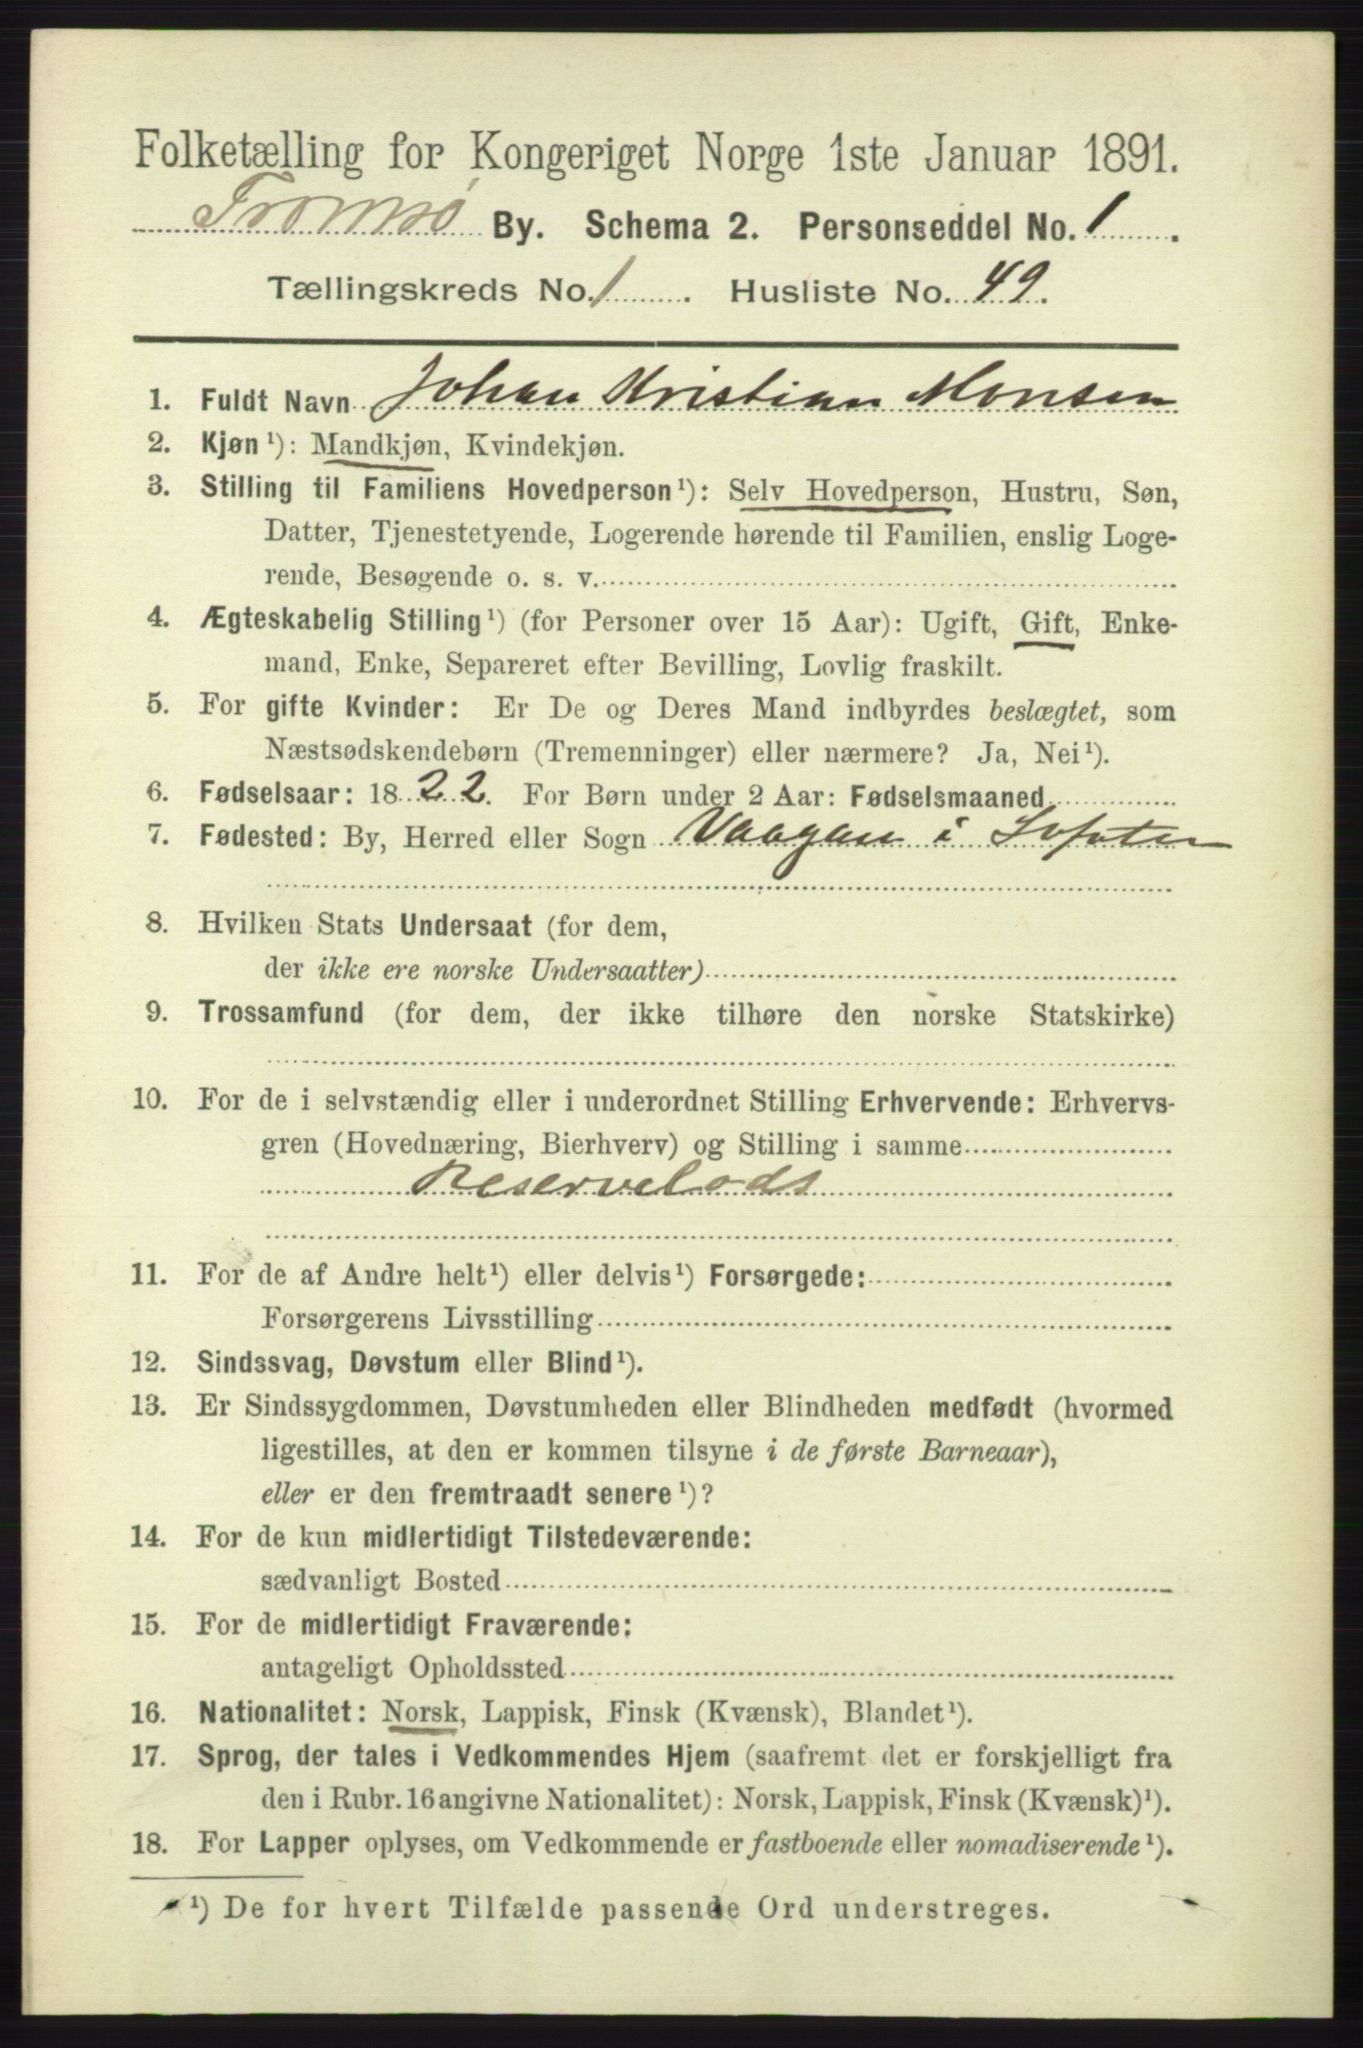 Folketælling for Kongeriget Norge 1ste Januar 1891.
Tromsø By. Schema 2. Personseddel No. 1.
Tællingskreds No. 1. Husliste No. 49.
1. Fuldt Navn Johan Kristian Monsen
2. Kjøn¹): Mandkjøn, Kvindekjøn.
3. Stilling til Familiens Hovedperson¹): Selv Hovedperson, Hustru, Søn,
Datter, Tjenestetyende, Logerende hørende til Familien, enslig Loge-
rende, Besøgende o. s. v.
4. Ægteskabelig Stilling¹) (for Personer over 15 Aar): Ugift, Gift, Enke-
mand, Enke, Separeret efter Bevilling, Lovlig fraskilt.
5. For gifte Kvinder: Er De og Deres Mand indbyrdes beslægtet, som
Næstsødskendebørn (Tremenninger) eller nærmere? Ja, Nei¹).
6. Fødselsaar: 1822. For Børn under 2 Aar: Fødselsmaaned
7. Fødested: By, Herred eller Sogn Vaagan i Lofoten
8. Hvilken Stats Undersaat (for dem,
der ikke ere norske Undersaatter)
9. Trossamfund (for dem, der ikke tilhøre den norske Statskirke)
10. For de i selvstændig eller i underordnet Stilling Erhvervende: Erhvervs-
gren (Hovednæring, Bierhverv) og Stilling i samme
Reservelods
11. For de af Andre helt¹) eller delvis¹) Forsørgede:
Forsørgerens Livsstilling
12. Sindssvag, Døvstum eller Blind¹).
13. Er Sindssygdommen, Døvstumheden eller Blindheden medfødt (hvormed
ligestilles, at den er kommen tilsyne i de første Barneaar),
eller er den fremtraadt senere¹)?
14. For de kun midlertidigt Tilstedeværende:
sædvanligt Bosted
15. For de midlertidigt Fraværende:
antageligt Opholdssted
16. Nationalitet: Norsk, Lappisk, Finsk (Kvænsk), Blandet¹).
17. Sprog, der tales i Vedkommendes Hjem (saafremt det er forskjelligt fra
den i Rubr. 16 angivne Nationalitet): Norsk, Lappisk, Finsk (Kvænsk)¹).
18. For Lapper oplyses, om Vedkommende er fastboende eller nomadiserende¹).
¹) De for hvert Tilfælde passende Ord understreges.